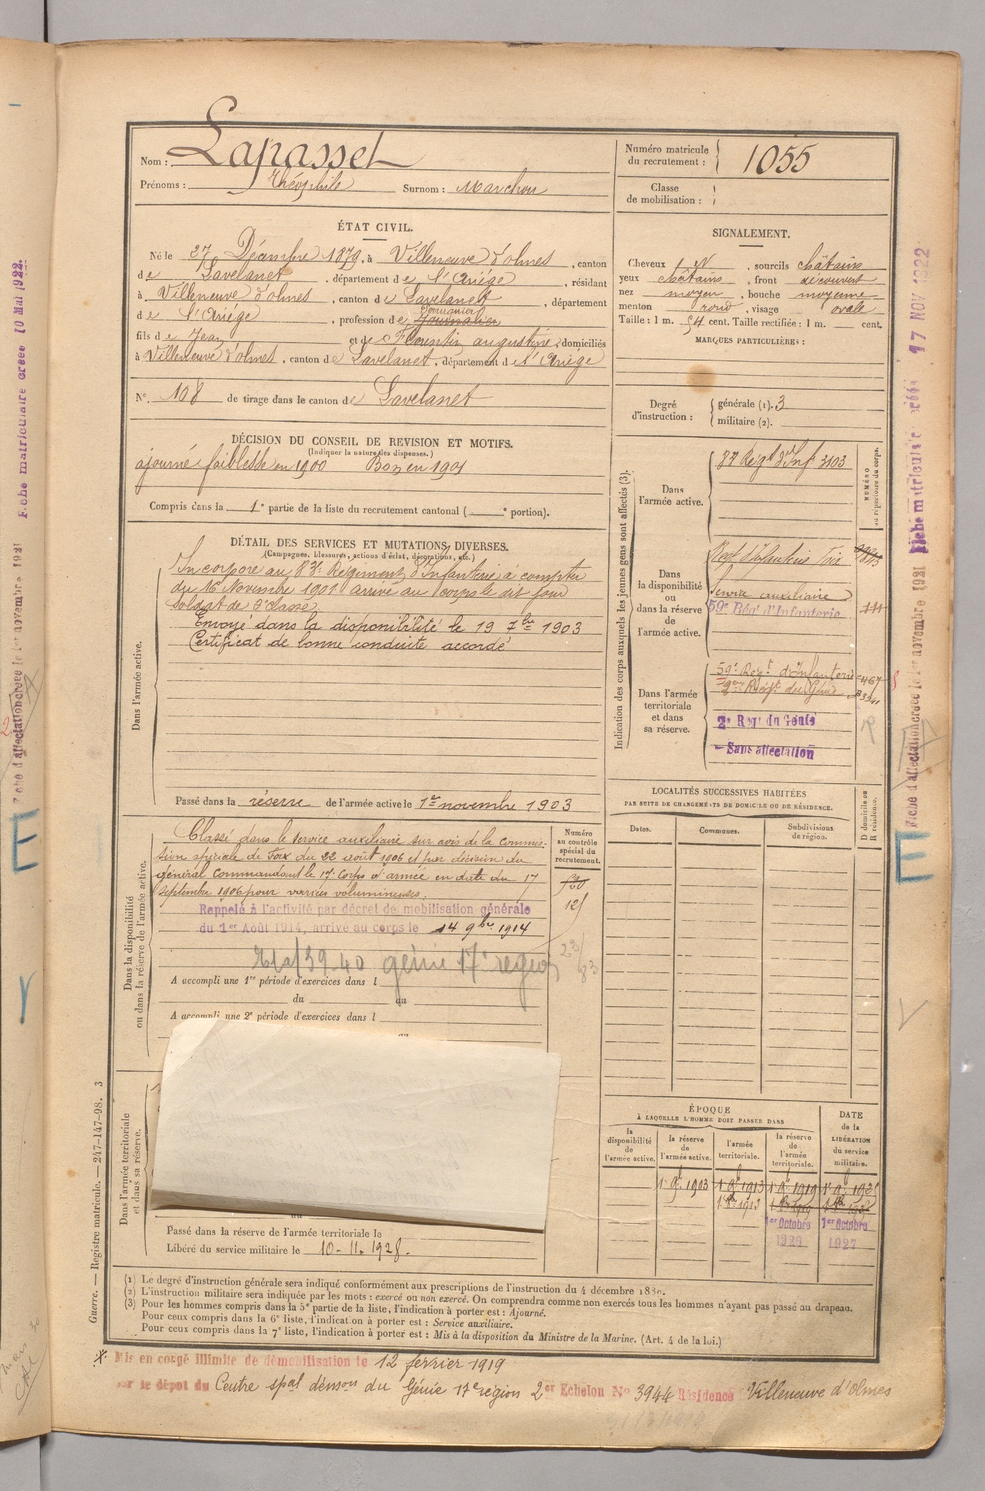 Nom : Lapasset
Prénoms : Théophile Surnom : Marchou
Numéro matricule du recrutement : 1055
Classe de mobilisation :
ÉTAT CIVIL.
Né le 27 Décembre 1879, à Villeneuve d'olmes, canton
de Lavelanet, département de l'Ariége, résidant
à Villeneuve d'olmes, canton de Lavelanet, département
de l'Ariége, profession de Journalier
fils de Jean et de Florentin augustine, domiciliés
à Villeneuve d'olmes, canton de Lavelanet, département de l'Ariége
N° 108 de tirage dans le canton de Lavelanet
SIGNALEMENT.
Cheveux N, sourcils châtains
yeux châtains, front découvert
nez moyen, bouche moyenne
menton rond, visage ovale
Taille : 1 m. 54 cent. Taille rectifiée : 1 m. cent.
MARQUES PARTICULIÈRES :
Degré d'instruction : générale (1). 3
militaire (2).
DÉCISION DU CONSEIL DE REVISION ET MOTIFS.
(Indiquer la nature des dispenses.)
ajourné faiblesse en 1900 Bon en 1901
Compris dans la 1e partie de la liste du recrutement cantonal ( e portion).
DÉTAIL DES SERVICES ET MUTATIONS DIVERSES.
(Campagnes, blessures, actions d'éclat, décorations, etc.)
Dans l'armée active.
Incorporé au 87e Régiment d'Infanterie à compter
du 16 Novembre 1901 arrivé au corps le dit jour
soldat de 2e classe
Envoyé dans la disponibilité le 19 7bre 1903
Certificat de bonne conduite accordé
Passé dans la réserve de l'armée active le 1er novembre 1903
Dans la disponibilité ou dans la réserve de l'armée active.
Classé dans le service auxiliaire sur avis de la Commis-
sion spéciale de Foix du 22 août 1906 et par décision du
général Commandant le 17e Corps d'armée en date du 17
septembre 1906 pour varices volumineuses
Rappelé à l'activité par décret de mobilisation générale
du 1er Août 1914, arrivé au corps le 14 9bre 1914
génie 17e region
A accompli une 1re période d'exercices dans l
du au
A accompli une 2e période d'exercices dans l
Numéro au contrôle spécial du recrutement.
Dans l'armée territoriale et dans sa réserve.
Passé dans la réserve de l'armée territoriale le
Libéré du service militaire le 10-11-1928.
Indication des corps auxquels les jeunes gens sont affectés (3).
NUMÉRO au répertoire du corps.
Dans l'armée active.
87 Régt d'Inf 3103
Dans la disponibilité ou dans la réserve de l'armée active.
Regt d'Infanterie Foix
Service auxiliaire
59e Rég' d'Infanterie 111
Dans l'armée territoriale et dans sa réserve.
59e Regt d'Infanterie 467
2e Régt du Génie
2e Régt du Génie
Sans affectation
LOCALITÉS SUCCESSIVES HABITÉES
PAR SUITE DE CHANGEMENTS DE DOMICILE OU DE RÉSIDENCE.
D domicile ou R résidence.
Dates. Communes. Subdivisions de région.
ÉPOQUE
À LAQUELLE L'HOMME DOIT PASSER DANS
la disponibilité de l'armée active.
la réserve de l'armée active.
l'armée territoriale.
la réserve de l'armée territoriale.
DATE de la LIBÉRATION du service militaire.
1er Octobre 1er Octobre
1927
(1) Le degré d'instruction générale sera indiqué conformément aux prescriptions de l'instruction du 4 décembre 1889.
(2) L'instruction militaire sera indiquée par les mots : exercé ou non exercé. On comprendra comme non exercés tous les hommes n'ayant pas passé au drapeau.
(3) Pour les hommes compris dans la 5e partie de la liste, l'indication à porter est : Ajourné.
Pour ceux compris dans la 6e liste, l'indication à porter est : Service auxiliaire.
Pour ceux compris dans la 7e liste, l'indication à porter est : Mis à la disposition du Ministre de la Marine. (Art. 4 de la loi.)
Mis en congé illimité de démobilisation le 12 février 1919
par le dépôt du Centre spal démon du Génie 17e region 2e Echelon No 3944 Résidence Villeneuve d'Olmes
Guerre. — Registre matricule. — 247-147-98. 3
Fiche matriculaire créée 10 Mai 1922.
Fiche d'affectation créée le 1er novembre 1921
Fiche matriculaire créée 17 NOV 1922
Fiche d'affectation créée le 1er novembre 1921
E
E